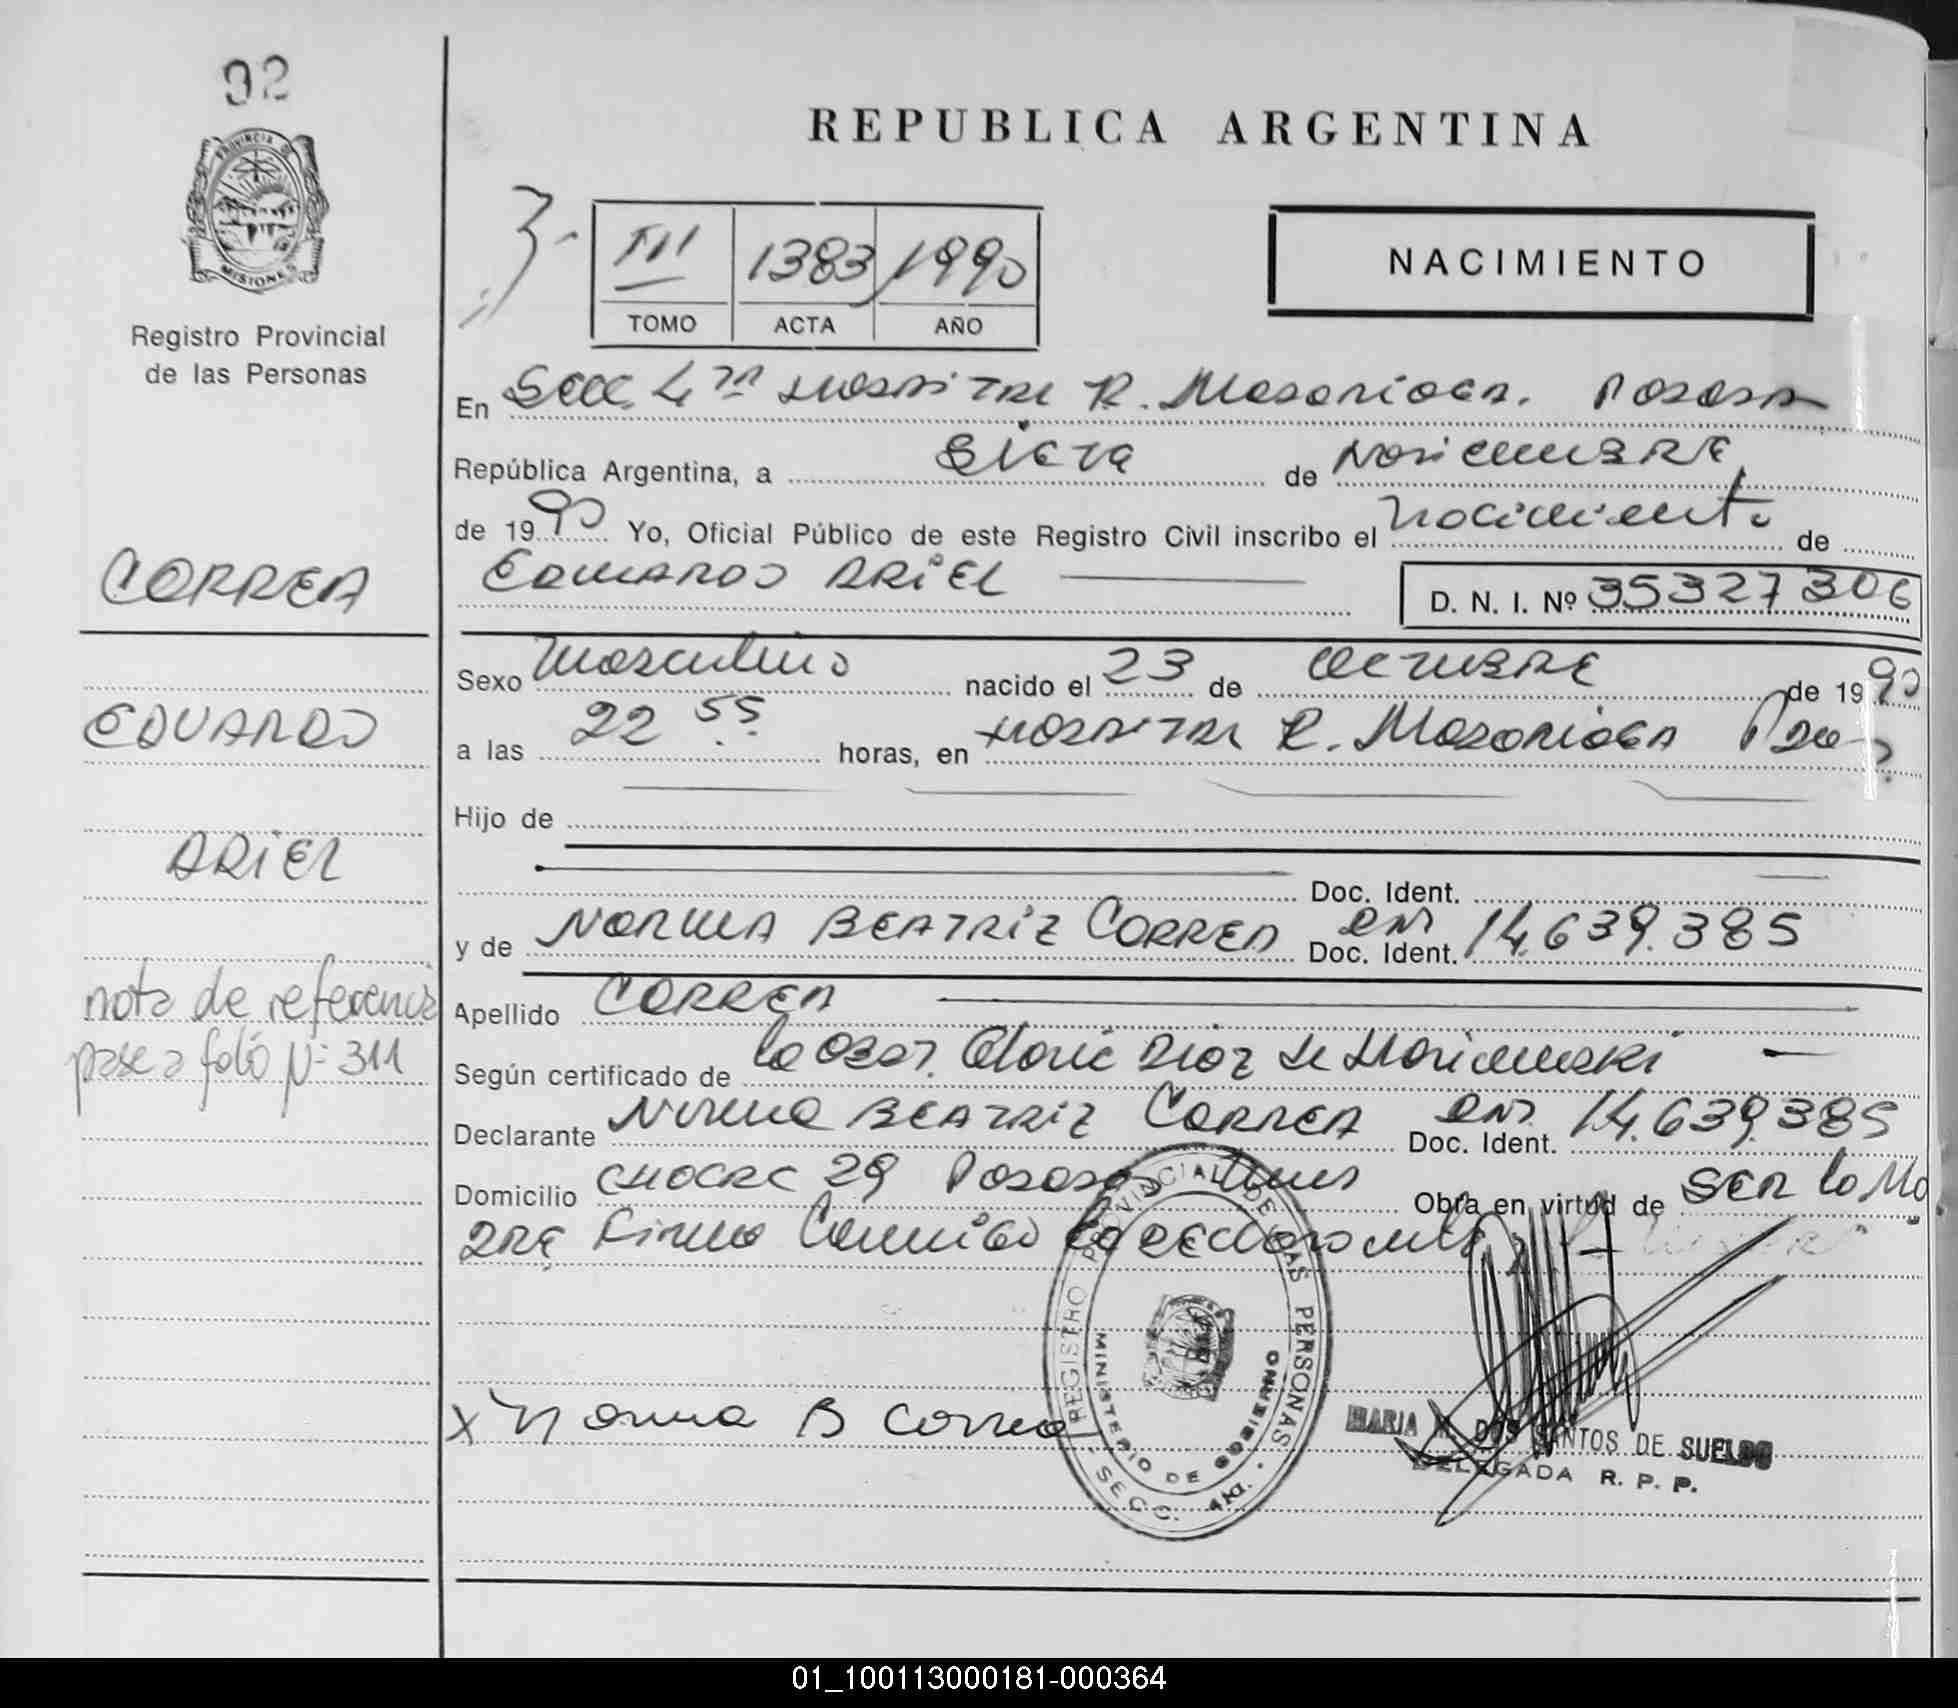 92
PROVINCIA D
MISIONES
Registro Provincial
de las Personas
CORREA
EDUARDO
ARIEL
nota de referencia
pase a folio Nº 311
REPUBLICA ARGENTINA
III 1383 1990
TOMO ACTA AÑO
NACIMIENTO
En Secc. 4ta Hospital R. Madariaga. Posadas
República Argentina, a siete de Noviembre
de 1990 Yo, Oficial Público de este Registro Civil inscribo el nacimiento de
EDUARDO ARIEL D. N. I. Nº 35327306
Sexo masculino nacido el 23 de octubre de 1990
a las 22 55 horas, en Hospital R. Madariaga Pdas
Hijo de
Doc. Ident.
y de NORMA BEATRIZ CORREA DNI Doc. Ident. 14.639.385
Apellido CORREA
Según certificado de la Obst. Diaz de
Declarante Norma BEATRIZ CORREA DNI Doc. Ident. 14.639.385
Domicilio 29 Posadas Mnes Obra en virtud de SER la Ma
dre Firma Conmigo la declarante
X Norma B Correa
REGISTRO PROVINCIAL DE LAS PERSONAS
MINISTERIO DE GOBIERNO
SECC. 4ta.
MARIA DOS SANTOS DE SUELDO
DELEGADA R. P. P.
01_100113000181-000364